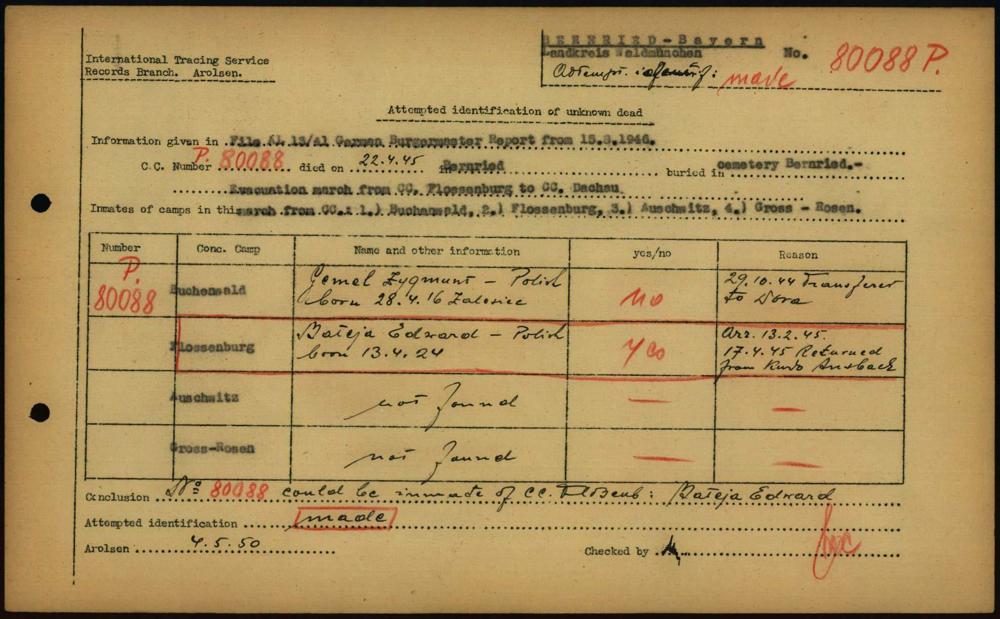 BERNRIED-Bayern
International Tracing Service
Landkreis Waldmünchen No. 80088 P.
Records Branch. Arolsen.
Attempt. identif: made
Attempted identification of unknown dead
Information given in File AL 13/A1 German Burgermester Report from 15.8.1946.
C.C. Number P. 80088 died on 22.4.45 Bernried buried in cemetery Bernried.-
Evacuation march from CC. Flossenburg to CC. Dachau
Inmates of camps in this march from CC.: 1.) Buchenwald, 2.) Flossenburg, 3.) Auschwitz, 4.) Gross - Rosen.
Number Conc. Camp Name and other information yes/no Reason
P. 80088 Buchenwald Gemel Zygmunt - Polish no 29.10.44 Transferet
born 28.4.16 Zalesiec to Dora
Flossenburg Bateja Edward - Polish yes Arr. 13.2.45.
born 13.4.24 17.4.45 Returned
from Kmdo Ansback
Auschwitz not found — —
Gross-Rosen not found — —
Conclusion No 80088 could be inmade of CC. Floßenb: Bateja Edward
Attempted identification made
Arolsen 4.5.50 Checked by